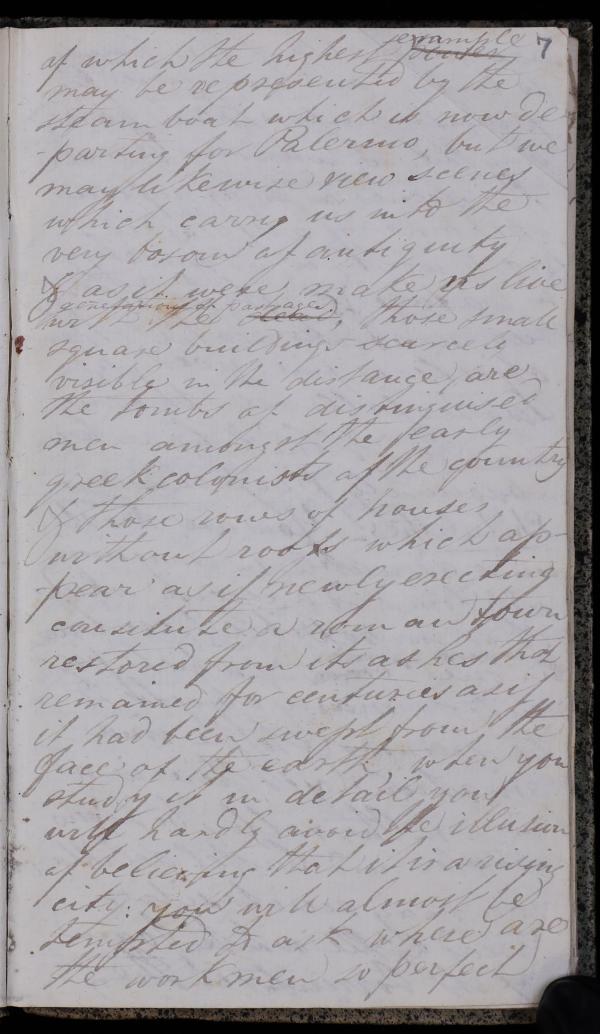 example 7
of which the highest
may be represented by the
steam boat which is now de-
-parting for Palermo, but we
may likewise view scenes
which carry us into the
very bosom of antiquity
& as it were make us live
generations passed
with the dead, those small
square buildings scarcely
visible in the distance, are
the tombs of distinguised
men amongst the early
greek colonists of the country
& those rows of houses
without roofs which ap-
-pear as if newly erecting
constitute a roman town
restored from its ashes that
remained for centuries as if
it had been swept from the
face of the earth. when you
study it in detail you
will hardly avoid the illusion
of believing that it is a rising
city: you will almost be
tempted to ask where are
the workmen so perfect